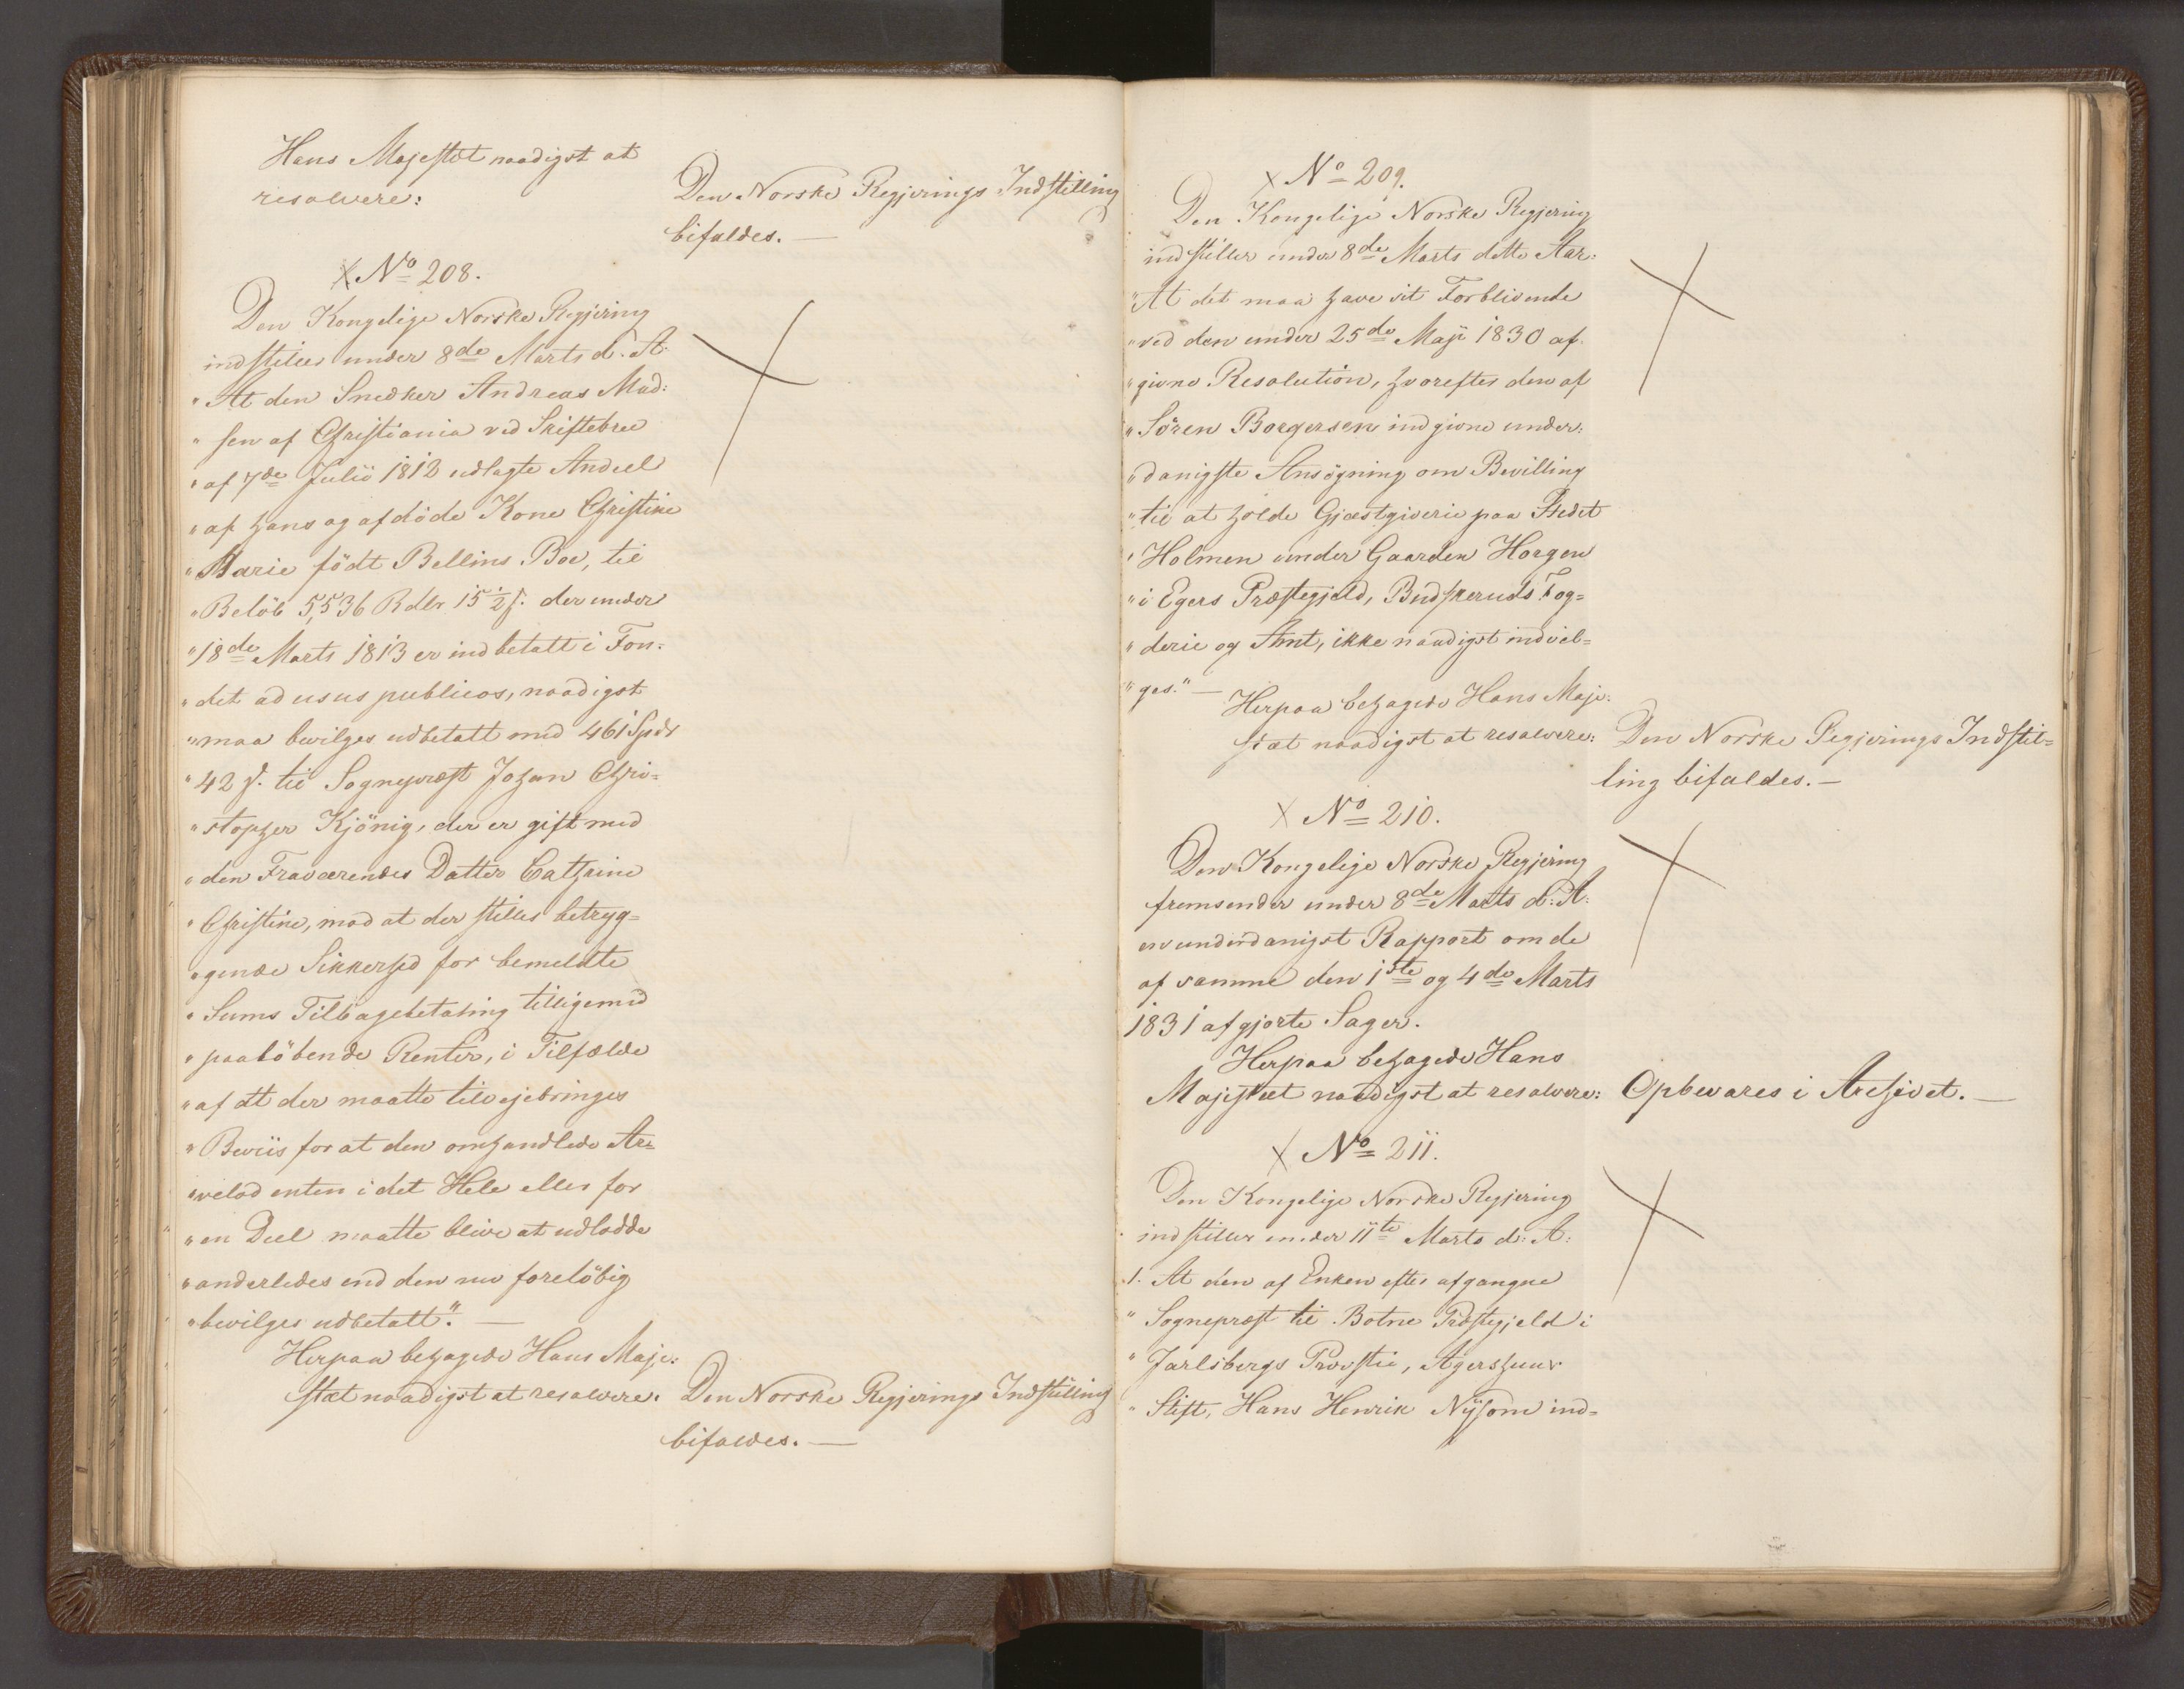 Hans Majestæt naadigst at
resolvere:
Den Norske Regjerings Indstilling
bifaldes. —
No 208.
Den Kongelige Norske Regjering
indstiller under 8de Marts d. A.
"At den Snedker Andreas Mad:
"sen af Christiania ved Skiftebrev
"af 7de Julii 1812 udlagte Andeel
"af hans og afdöde Kone Christine
"Marie födt Bellins Boe, til
"Belöb 5,536 Rdlr. 15½ s. der under
"18de Marts 1813 er indbetalt i Fon:
"det ad usus publicos, naadigst
"maa bevilges udbetalt med 461 Spdr
"42 s. til Sognepræst Johan Chri=
"stopher Kjönig, der er gift med
"den Fraværendes Datter Cathrine
"Christine, mod at der stilles betryg=
"gende Sikkerhed for bemeldte
"Sums Tilbagebetaling tilligemed
"paalöbende Renter, i Tilfælde
"af at der maatte tilvejebringes
"Beviis for at den omhandlede Ar=
"velod enten i det Hele eller for
"en Deel maatte blive at udlodde
"anderledes end den nu forelöbig
"bevilges udbetalt". —
Herpaa behagede Hans Maje:
stæt naadigst at resolvere:
Den Norske Regjerings Indstilling
bifaldes. —
No 209.
Den Kongelige Norske Regjering
indstiller under 8de Marts dette Aar:
"At det maa have sit Forblivende
"ved den under 25de Maji 1830 af
"givne Resolution, hvorefter den af
"Sören Borgersen indgivne under:
"danigste Ansögning om Bevilling
"til at holde Gjæstgiverie paa Stedet
"Holmen under Gaarden Horgen
"i Egers Præstegjeld, Budskeruds Fog=
"derie og Amt, ikke naadigst indvil=
"ges." —
Herpaa behagede Hans Maje:
stæt naadigst at resolvere:
Den Norske Regjerings Indstil=
ling bifaldes. —
No 210.
Den Kongelige Norske Regjering
fremsender under 8de Marts d: A:
en underdanigst Rapport om de
af samme den 1ste og 4de Marts
1831 afgjorte Sager.
Herpaa behagede Hans
Majestæt naadigst at resolvere:
Opbevares i Archivet. —
No 211.
Den Kongelige Norske Regjering
indstiller under 11te Marts d: A:
1. At den af Enken efter afgangne
"Sognepræst til Botne Præstegjeld i
"Jarlsbergs Provstie, Agershuus
"Stift, Hans Henrik Nysom ind=